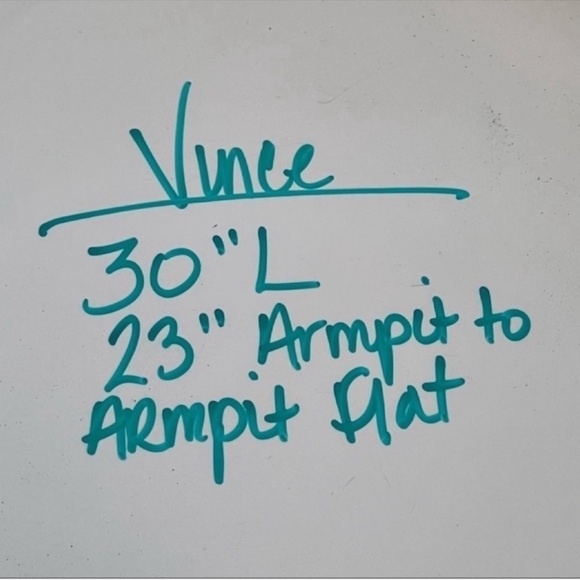 Vince
30" L
23" Armpit to
ARmpit flat